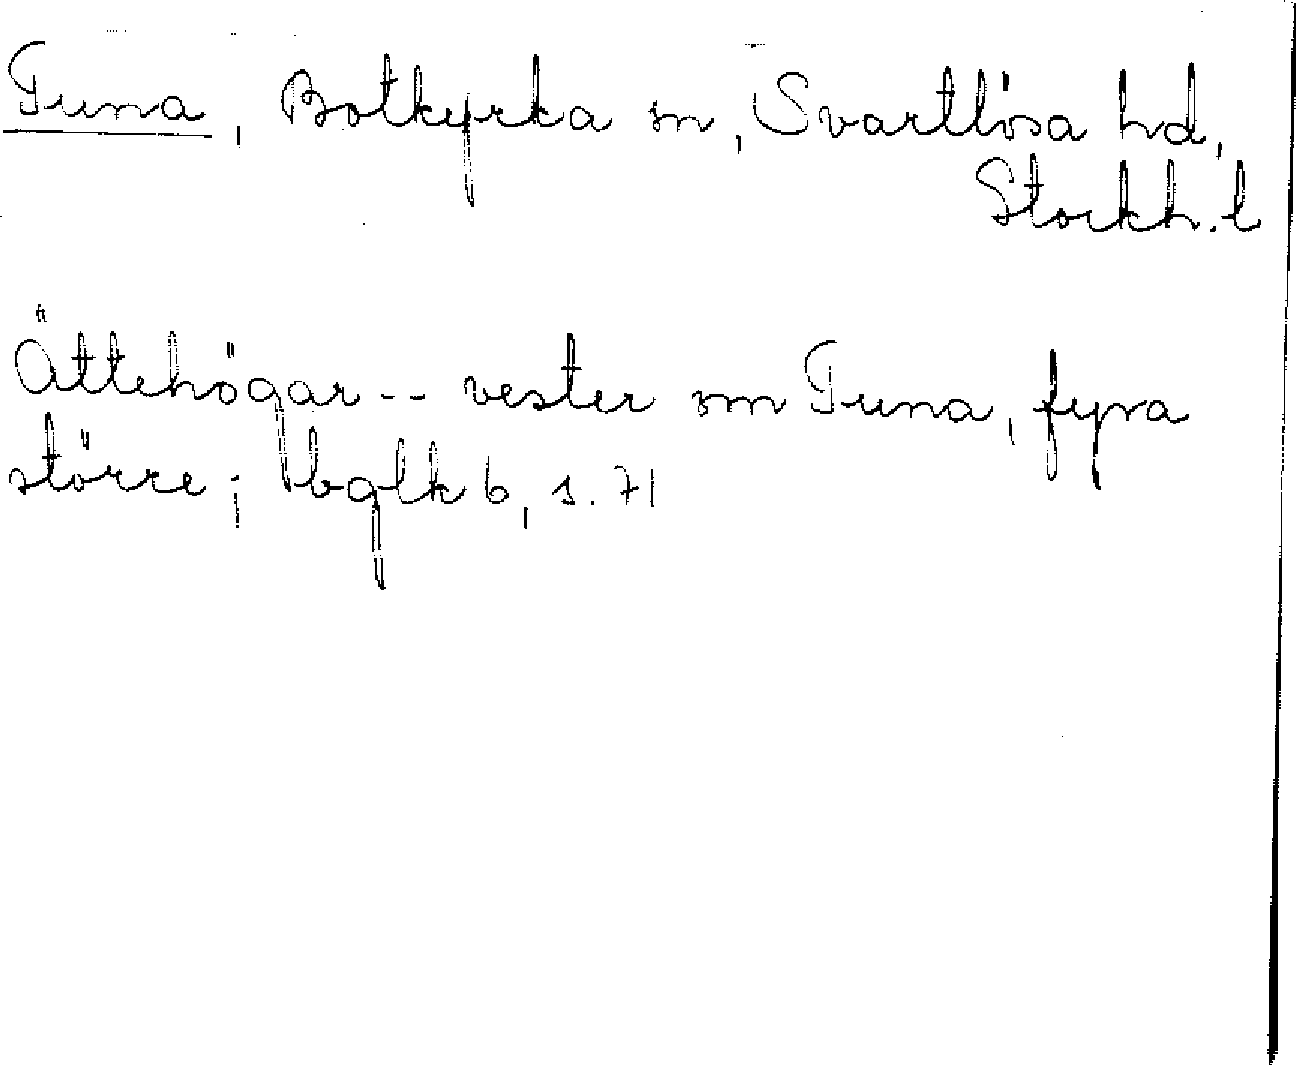 Tuna, Botkyrka sn, Svartlösa hd,
Stockh. l
Ättehögar -- vester om Tuna, fyra
större; bglk 6, s. 71